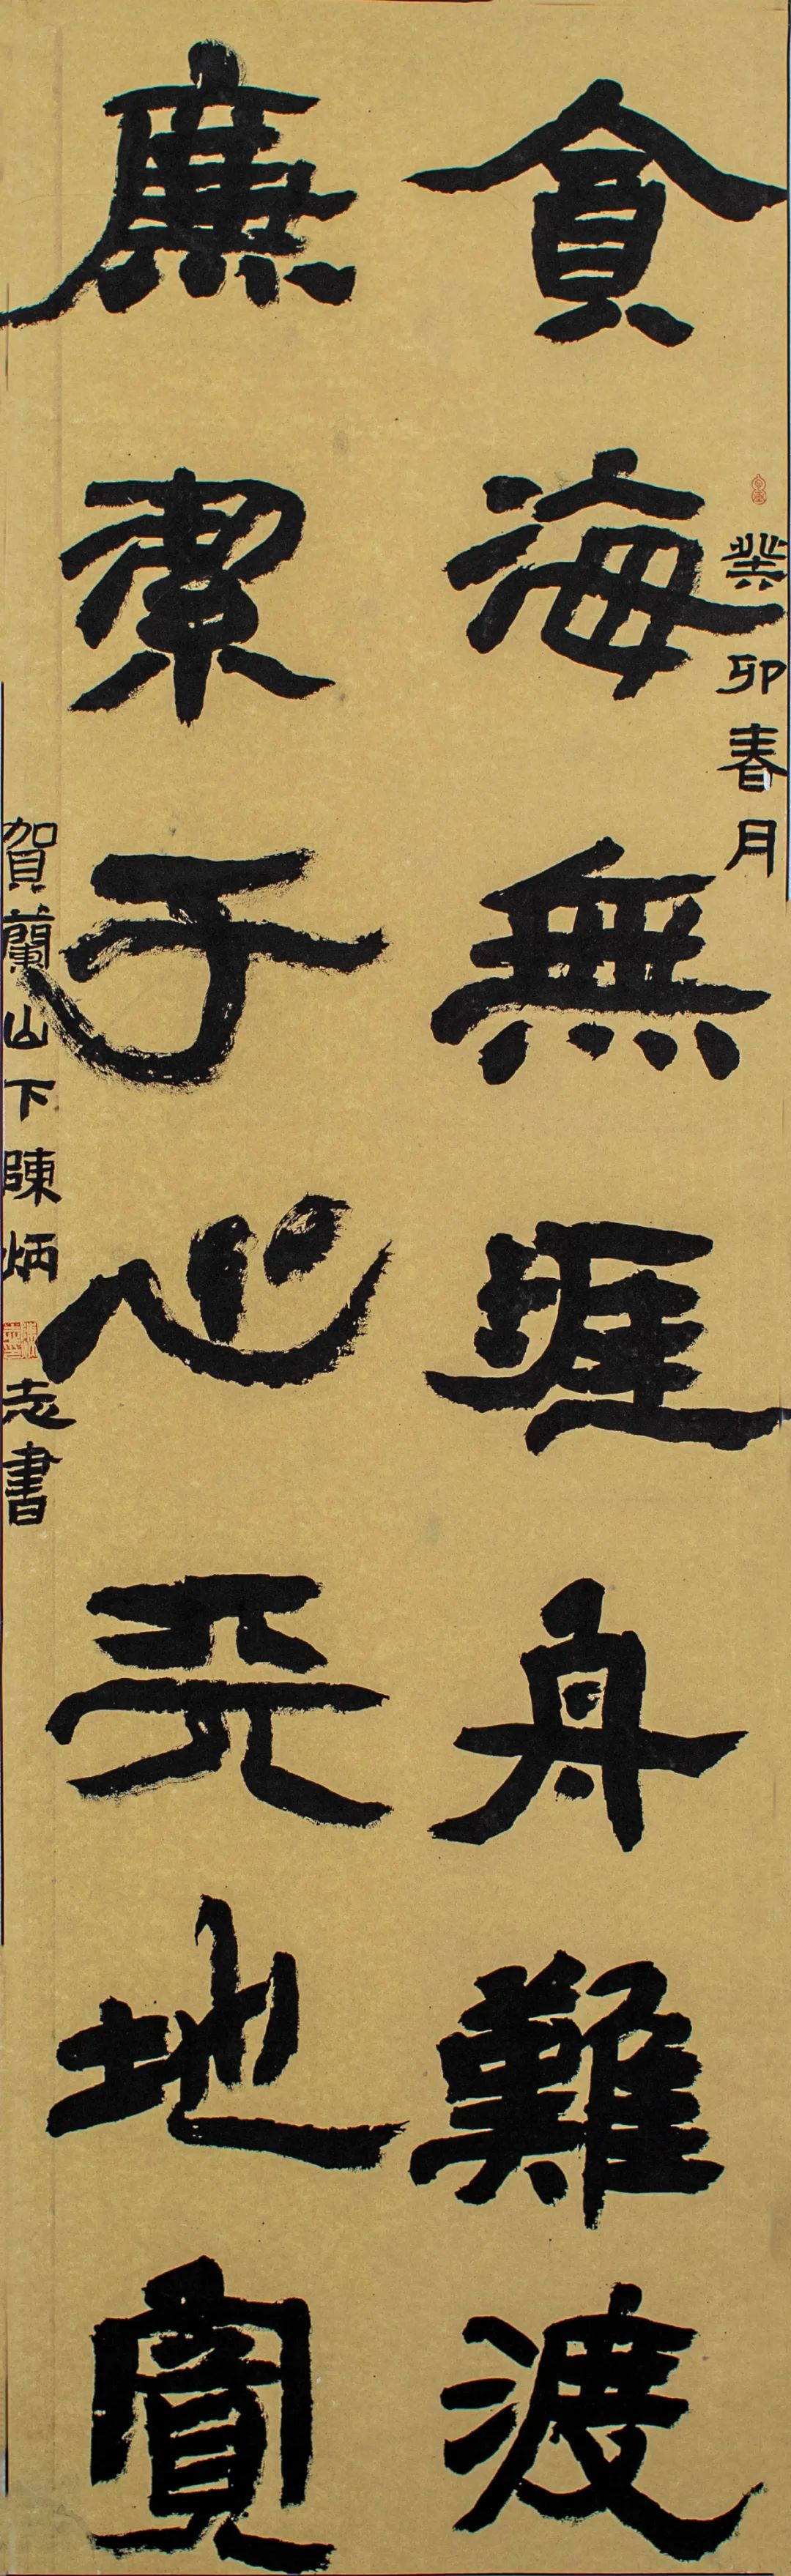 癸卯春月
貪海無涯舟難渡
廉絜于心天地寬
賀蘭山下陳炳志書